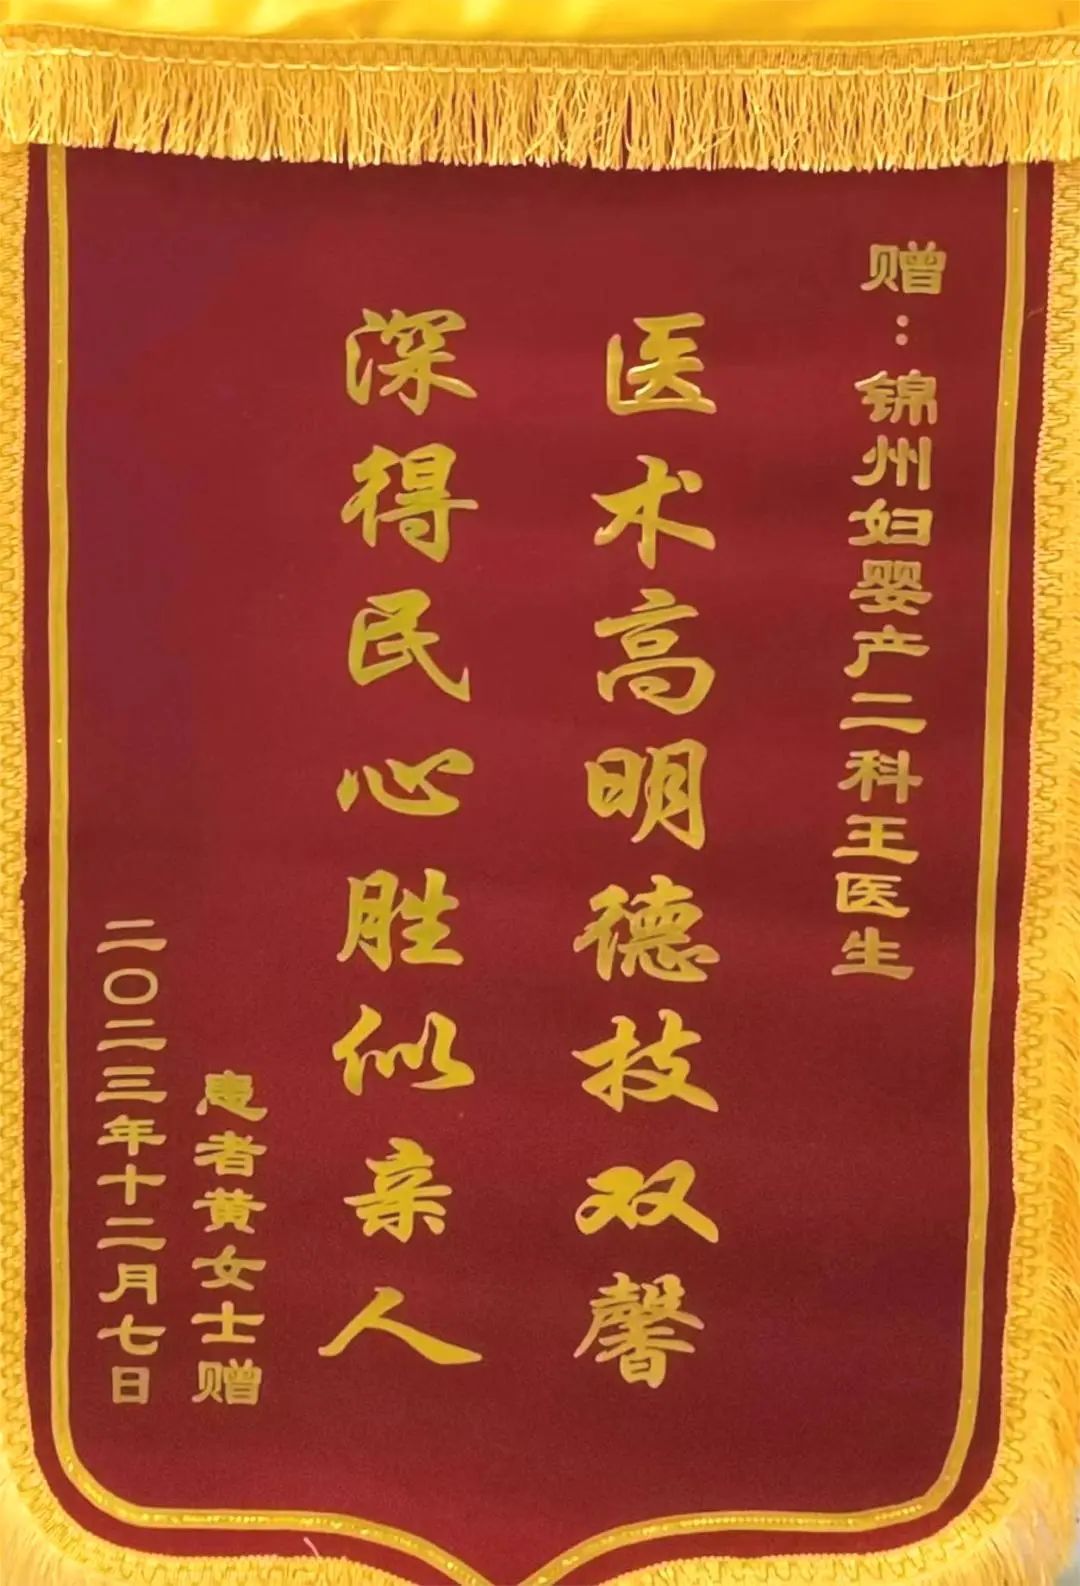 赠：锦州妇婴产二科王医生
医术高明德技双馨
深得民心胜似亲人
患者黄女士赠
二〇二三年十二月七日